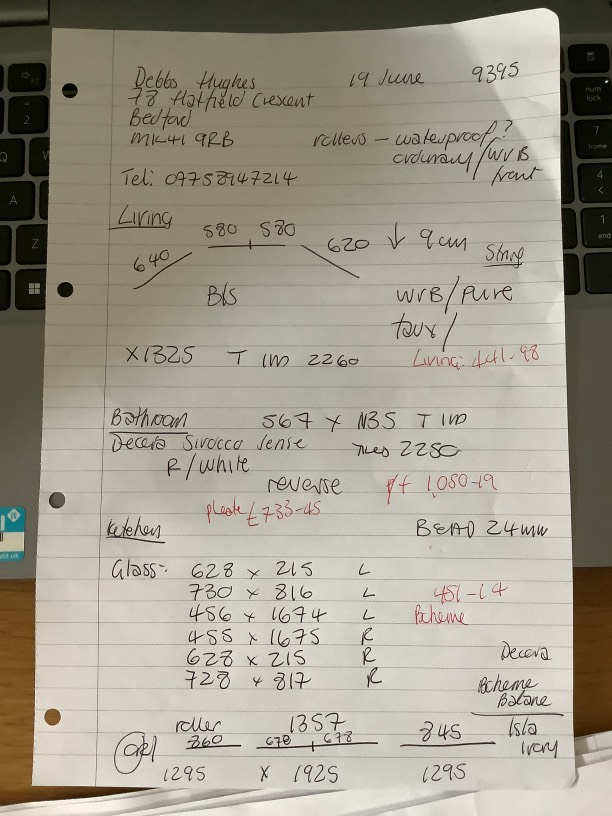 Debbs Hughes 19 June 9395
78 Hatfield Crescent
Bedford
MK41 9RB rollers - waterproof?
ordinary/WVB
front
Tel: 07758947214
Living
580 580
640 620 ↓ 9cm String
B/S WVB/Pure
faux/
x1325 T IM 2260 Living: 441-98
Bathroom 567 x NBS T IM
Decera Sirocco Sense 2250
R/white
reverse p/f 1,080-19
pleate £733-45
Kitchen BEAD 24mm
Glass:- 628 x 215 L
730 x 816 L 451-64
456 x 1674 L Bcheme
455 x 1675 R
628 x 215 R Decera
728 x 817 R
Bcheme
roller 1357 845 Isla
860 678 678 Ivory
1295 x 1925 1295